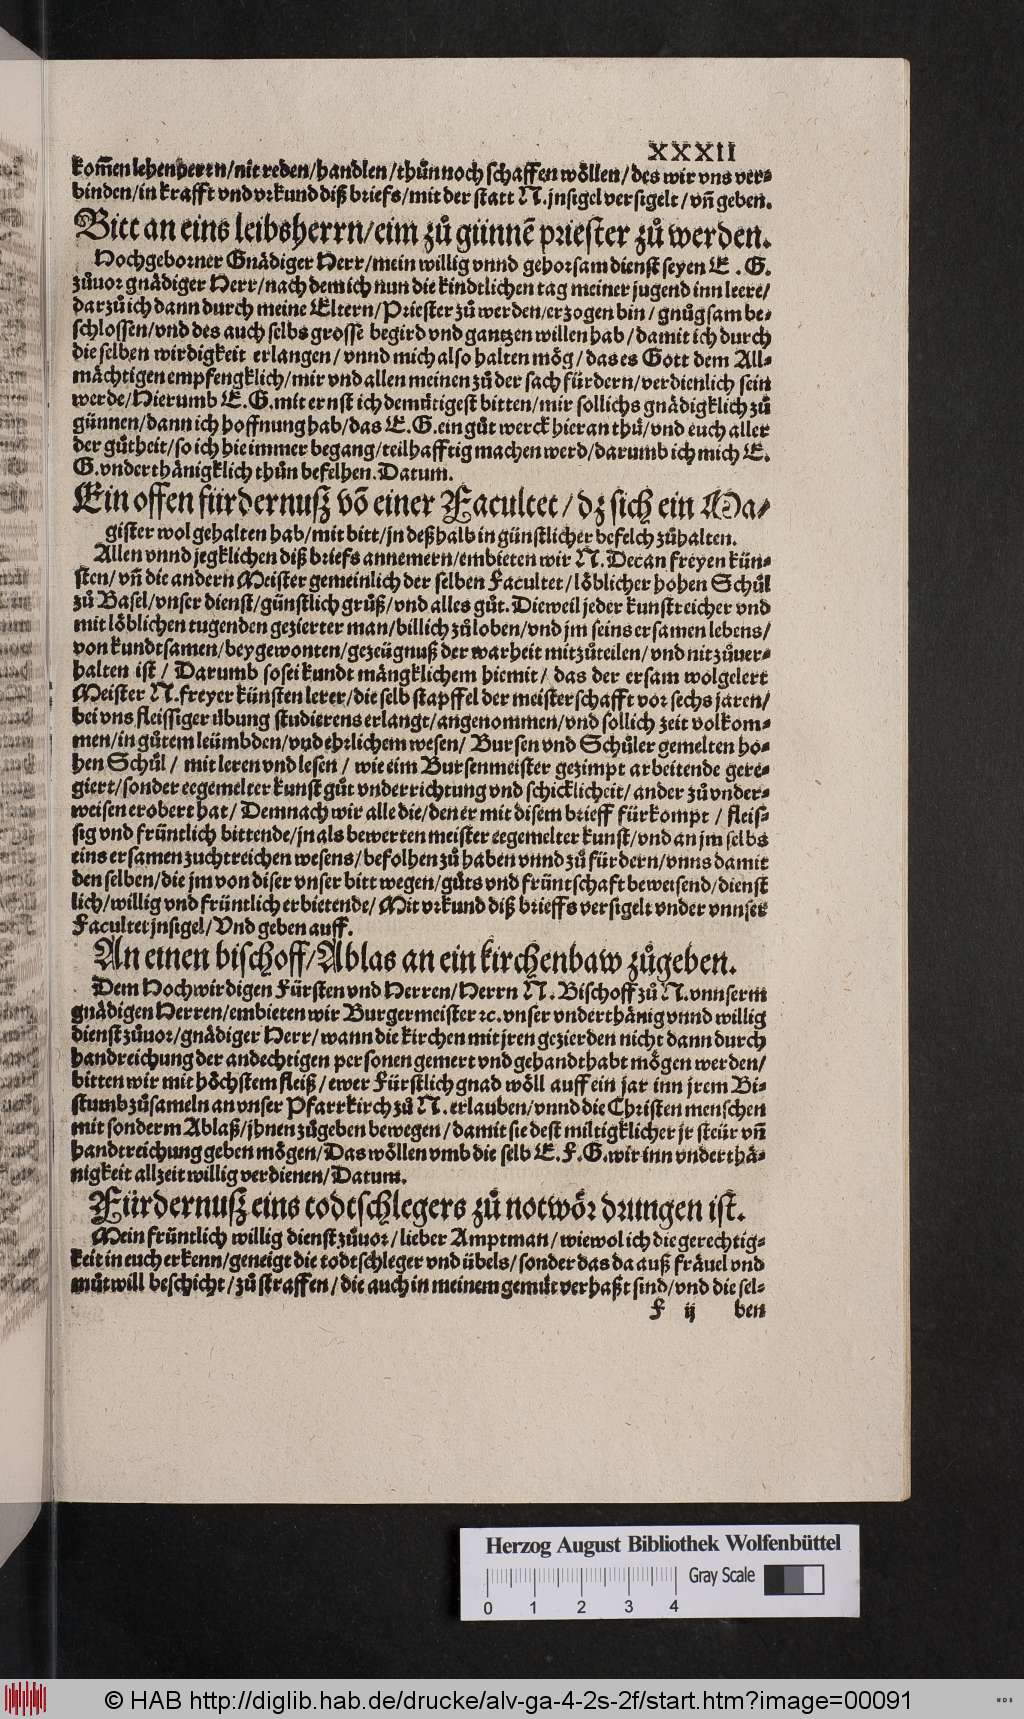 XXXII
kom̄en lehenherrn/nit reden/handlen/thůn noch schaffen wöllen/des wir vns ver⸗
binden/in krafft vnd vrkund diß briefs/mit der statt N. jnsigel versigelt/vn̄ geben.
Bitt an eins leibsherrn/eim zů günnē priester zů werden.
Hochgeborner Gnädiger Herr/mein willig vnnd gehorsam dienst seyen E. G.
zůuor gnädiger Herr/nach dem ich nun die kindtlichen tag meiner jugend inn leere/
darzů ich dann durch meine Eltern/Priester zů werden/erzogen bin/gnůgsam be⸗
schlossen/vnd des auch selbs grosse begird vnd gantzen willen hab/damit ich durch
die selben wirdigkeit erlangen/vnnd mich also halten mög/das es Gott dem All⸗
mächtigen empfengklich/mir vnd allen meinen zů der sach fürdern/verdienlich sein
werde/Hierumb E. G. mit ernst ich demütigest bitten/mir sollichs gnädigklich zů
günnen/dann ich hoffnung hab/das E. G. ein gůt werck hier an thů/vnd euch aller
der gůtheit/so ich hie immer begang/teilhafftig machen werd/darumb ich mich E.
G. vnderthänigklich thůn befelhen. Datum.
Ein offen fürdernusz vō einer Facultet/dz sich ein Ma⸗
gister wol gehalten hab/mit bitt/jn deßhalb in günstlicher befelch zůhalten.
Allen vnnd jegklichen diß briefs annemern/embieten wir N. Decan freyen kün⸗
sten/vn̄ die andern Meister gemeinlich der selben Facultet/löblicher hohen Schůl
zů Basel/vnser dienst/günstlich grůß/vnd alles gůt. Dieweil jeder kunstreicher vnd
mit löblichen tugenden gezierter man/billich zůloben/vnd jm seins ersamen lebens/
von kundtsamen/beygewonten/gezeügnuß der warheit mitzůteilen/vnd nit zůuer⸗
halten ist/Darumb so sei kundt mängklichem hiemit/das der ersam wolgelert
Meister N. freyer künsten lerer/die selb stapffel der meisterschafft vor sechs jaren/
bei vns fleissiger übung studierens erlangt/angenommen/vnd sollich zeit volkom⸗
men/in gůtem leümbden/vnd ehrlichem wesen/Bursen vnd Schůler gemelten ho⸗
hen Schůl/mit leren vnd lesen/wie eim Bursenmeister gezimpt arbeitende gere⸗
giert/sonder eegemelter kunst gůt vnderrichtung vnd schicklicheit/ander zů vnder⸗
weisen erobert hat/Demnach wir alle die/den er mit disem brieff fürkompt/fleis⸗
sig vnd früntlich bittende/jn als bewerten meister eegemelter kunst/vnd an jm selbs
eins ersamen zuchtreichen wesens/befolhen zů haben vnnd zů fürdern/vnns damit
den selben/die jm von diser vnser bitt wegen/gůts vnd früntschaft beweisend/dienst
lich/willig vnd früntlich erbietende/Mit vrkund diß brieffs versigelt vnder vnnser
Facultet jnsigel/Vnd geben auff.
An einen bischoff/Ablas an ein kirchenbaw zůgeben.
Dem Hochwirdigen Fürsten vnd Herren/Herrn N. Bischoff zů N. vnnserm
gnädigen Herren/embieten wir Burgermeister ꝛc. vnser vnderthänig vnnd willig
dienst zůuor/gnädiger Herr/wann die kirchen mit jren gezierden nicht dann durch
handreichung der andechtigen personen gemert vnd gehandthabt mögen werden/
bitten wir mit höchstem fleiß/ewer Fürstlich gnad wöll auff ein jar inn jrem Bi⸗
stumb zůsameln an vnser Pfarrkirch zů N. erlauben/vnnd die Christen menschen
mit sonderm Ablaß/jhnen zůgeben bewegen/damit sie dest miltigklicher jr steür vn̄
handtreichung geben mögen/Das wöllen vmb die selb E. F. G. wir inn vnderthä⸗
nigkeit allzeit willig verdienen/Datum.
Fürdernusz eins todtschlegers zů notwör drungen ist.
Mein früntlich willig dienst zůuor/lieber Amptman/wiewol ich die gerechtig⸗
keit in euch erkenn/geneigt die todtschleger vnd übels/sonder das da auß fräuel vnd
můtwill beschicht/zů straffen/die auch in meinem gemüt verhaßt sind/vnd die sel⸗
F ij ben
Herzog August Bibliothek Wolfenbüttel
Gray Scale
0 1 2 3 4
© HAB http://diglib.hab.de/drucke/alv-ga-4-2s-2f/start.htm?image=00091